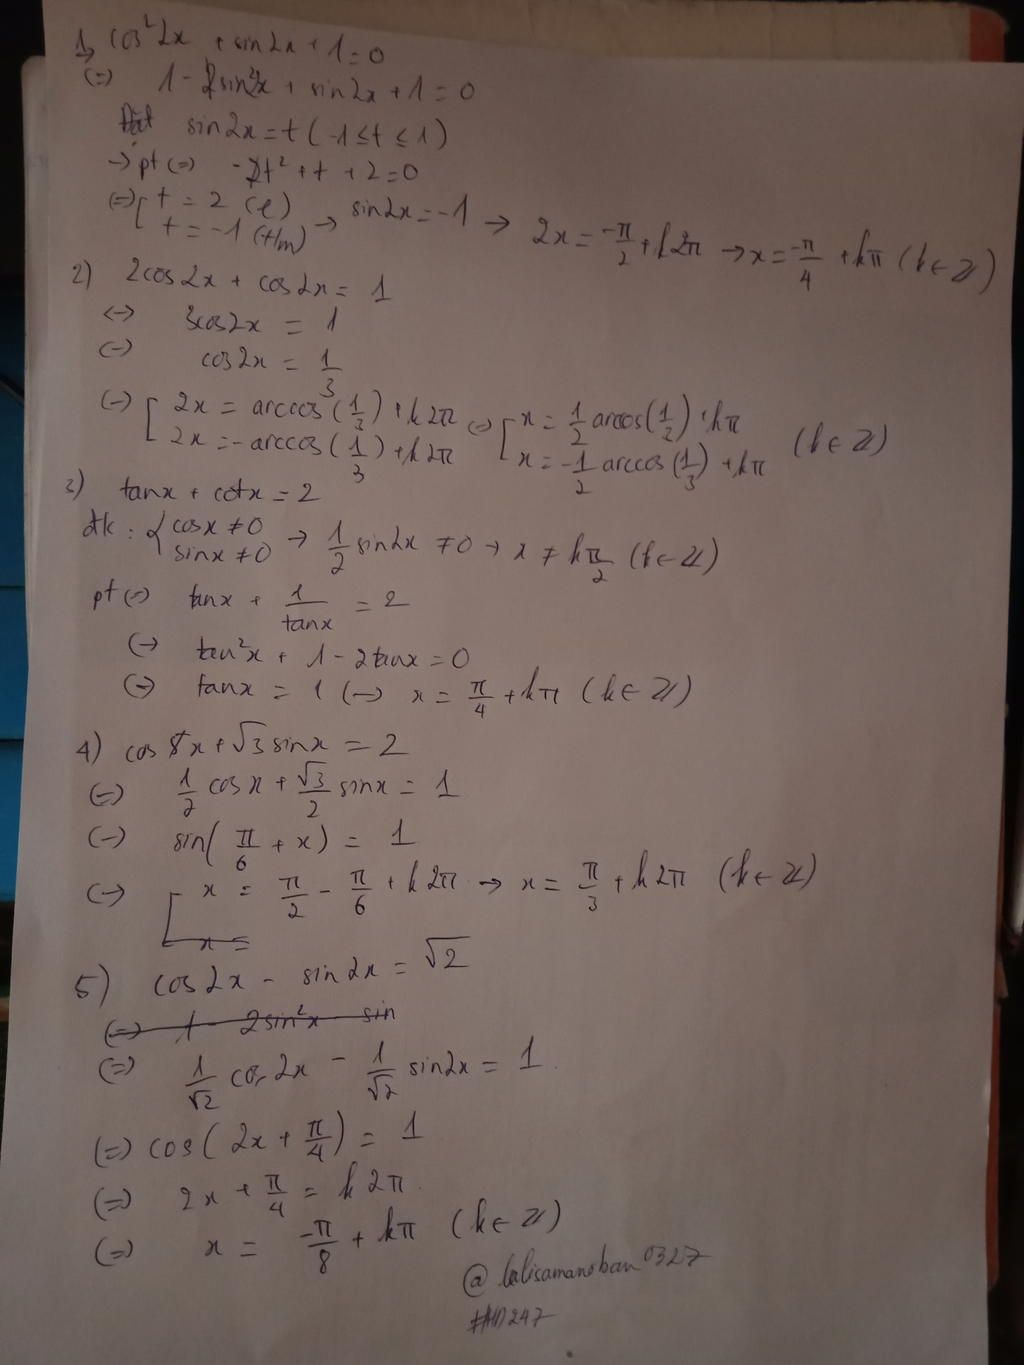 1, cos²2x + sin2x + 1 = 0
(=) 1 - sin²2x + sin2x + 1 = 0
Đặt sin2x = t ( -1 ≤ t ≤ 1)
→ pt (=) -t² + t + 2 = 0
(=) [ t = 2 (l)
t = -1 (t/m) → sin2x = -1 → 2x = -π/2 + k2π → x = -π/4 + kπ (k ∈ Z)
2) 2cos2x + cos2x = 1
(-) 3cos2x = 1
(-) cos2x = 1/3
(-) [ 2x = arccos(1/3) + k2π (=) [ x = 1/2 arccos(1/3) + kπ
2x = -arccos(1/3) + k2π x = -1/2 arccos(1/3) + kπ (k ∈ Z)
3) tanx + cotx = 2
đk : { cosx ≠ 0
sinx ≠ 0 → 1/2 sin2x ≠ 0 → x ≠ kπ/2 (k ∈ Z)
pt (=) tanx + 1/tanx = 2
(-) tan²x + 1 - 2tanx = 0
(-) tanx = 1 (-) x = π/4 + kπ (k ∈ Z)
4) cos x + √3 sinx = 2
(=) 1/2 cosx + √3/2 sinx = 1
(-) sin( π/6 + x ) = 1
(-) x = π/2 - π/6 + k2π → x = π/3 + k2π (k ∈ Z)
x =
5) cos2x - sin2x = √2
(=) 1 - 2sin²x - sin
(=) 1/√2 cos2x - 1/√2 sin2x = 1
(=) cos( 2x + π/4 ) = 1
(=) 2x + π/4 = k2π
(=) x = -π/8 + kπ (k ∈ Z)
@lalisamanoban0327
#HD247